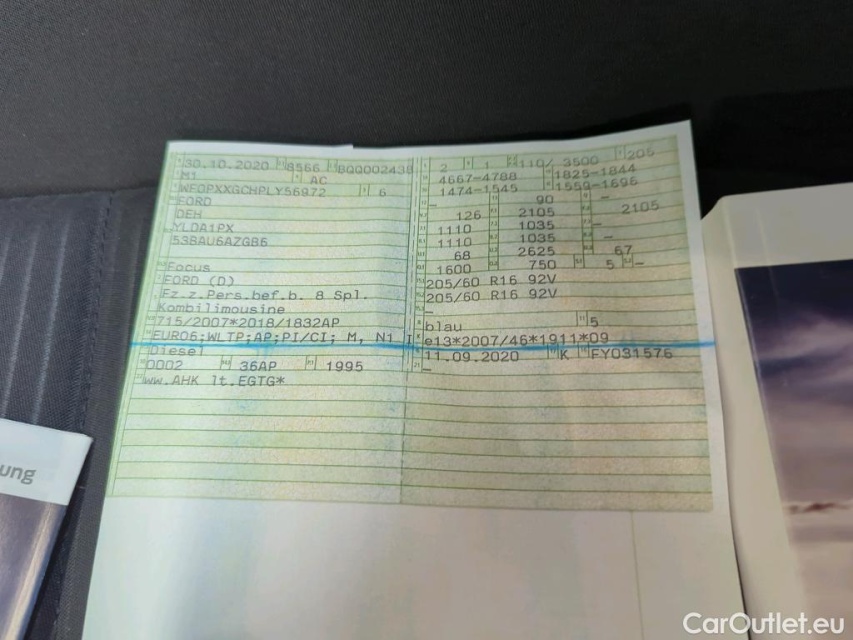 30.10.2020 8566 BQ0002438
M1 AC
WF0PXXGCHPLY56972 6
FORD
DEH
YLDA1PX
53BAU6AZGB6
Focus
FORD (D)
Fz.z.Pers.bef.b. 8 Spl.
Kombilimousine
715/2007*2018/1832AP
EURO6;WLTP;AP;PI/CI; M, N1 I
Diesel
0002 36AP 1995
ww.AHK lt.EGTG*
2 1 110/ 3500 205
4667-4788 1825-1844
1474-1545 1559-1696
– 90 –
126 2105 2105
1110 1035 –
1110 1035 –
68 2625 67
1600 750 5 –
205/60 R16 92V
205/60 R16 92V
–
blau 5
e13*2007/46*1911*09
11.09.2020 K FY031576
–
ung
CarOutlet.eu